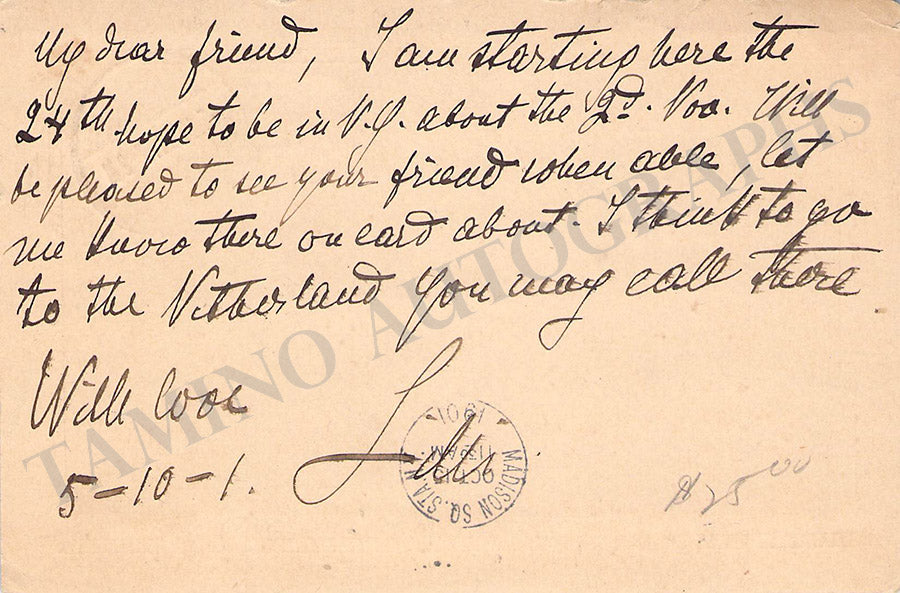 My dear friend, I am starting here the
24th hope to be in N.Y. about the 2d. Nov. Will
be pleased to see your friend when able, let
me know there on card about. I think to go
to the Netherland You may call there
With love
5-10-1.
MADISON SQ. STA. N.Y.
OCT 15
AM
1901
$25.00
TAMINO AUTOGRAPHS